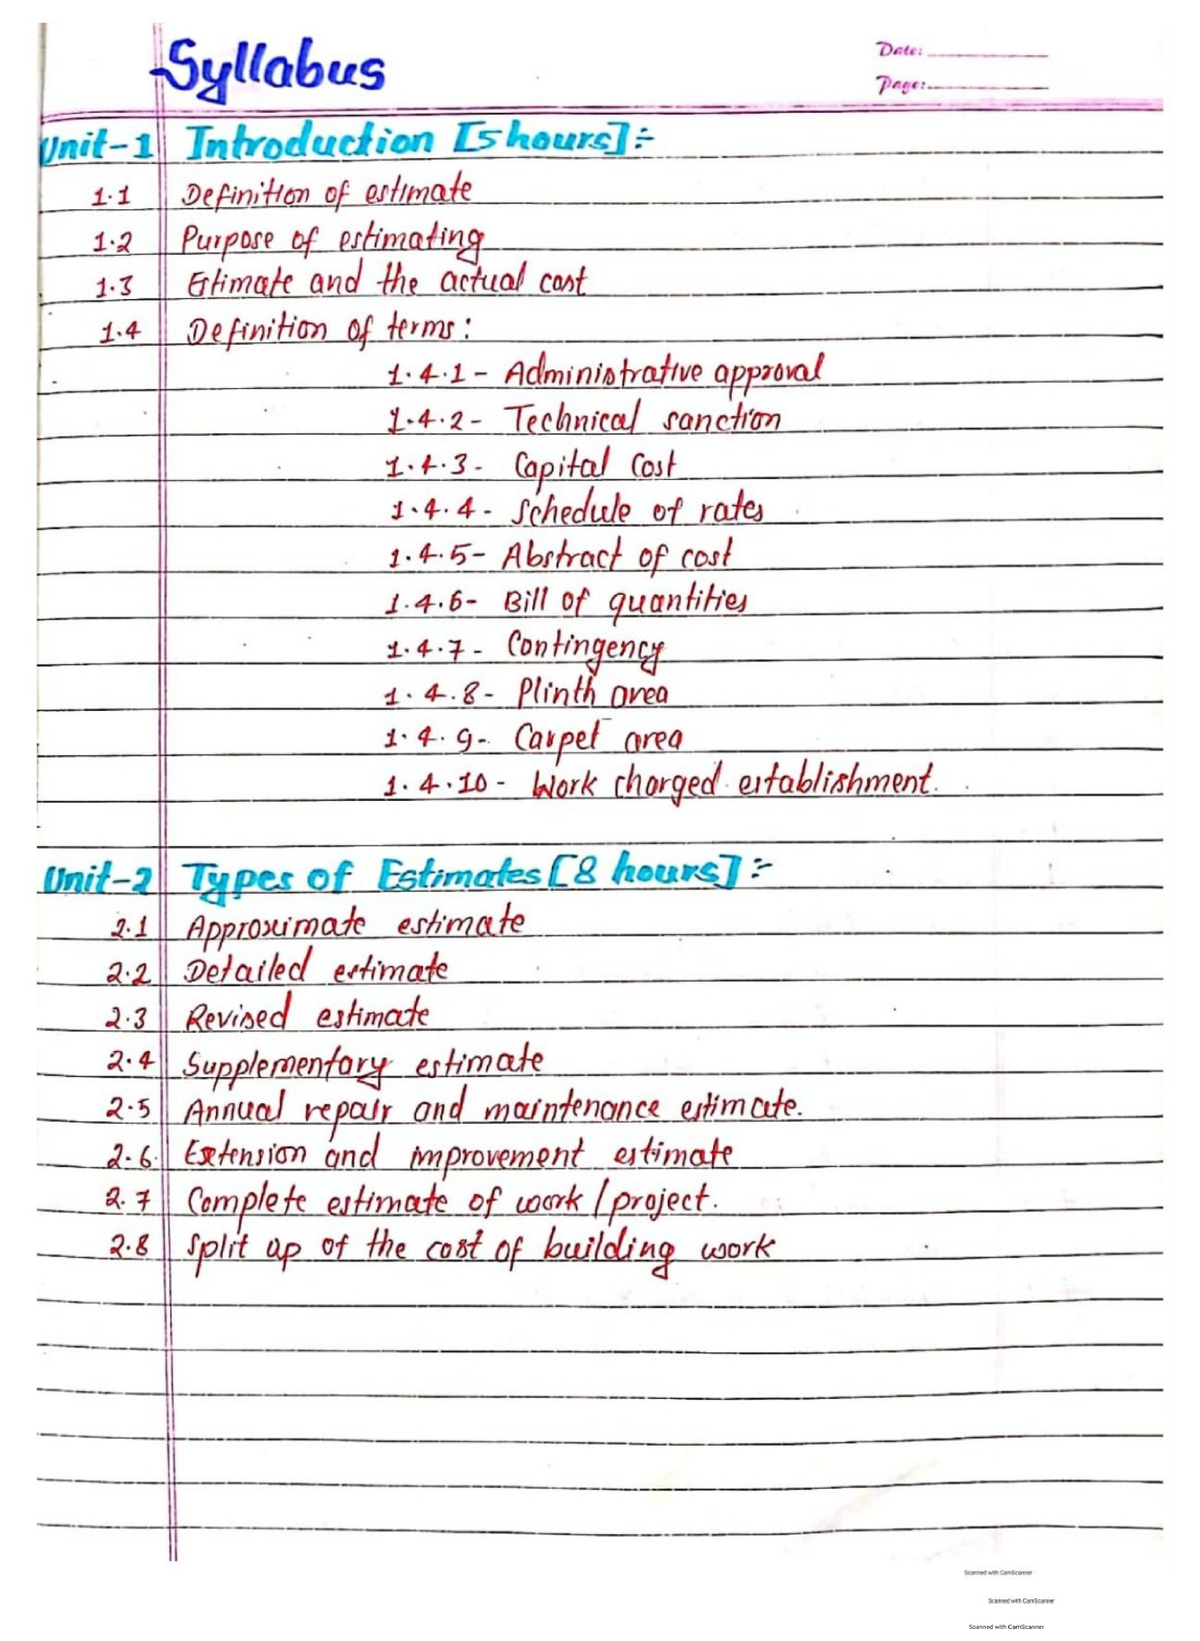 Syllabus
Date:
Page:
Unit-1 Introduction [5 hours]:-
1.1 Definition of estimate
1.2 Purpose of estimating
1.3 Estimate and the actual cost
1.4 Definition of terms:
1.4.1 - Administrative approval
1.4.2 - Technical sanction
1.4.3 - Capital cost
1.4.4 - Schedule of rates
1.4.5 - Abstract of cost
1.4.6 - Bill of quantities
1.4.7 - Contingency
1.4.8 - Plinth area
1.4.9 - Carpet area
1.4.10 - Work charged establishment.
Unit-2 Types of Estimates [8 hours]:-
2.1 Approximate estimate
2.2 Detailed estimate
2.3 Revised estimate
2.4 Supplementary estimate
2.5 Annual repair and maintenance estimate.
2.6 Extension and improvement estimate
2.7 Complete estimate of work / project.
2.8 Split up of the cost of building work
Scanned with CamScanner
Scanned with CamScanner
Scanned with CamScanner